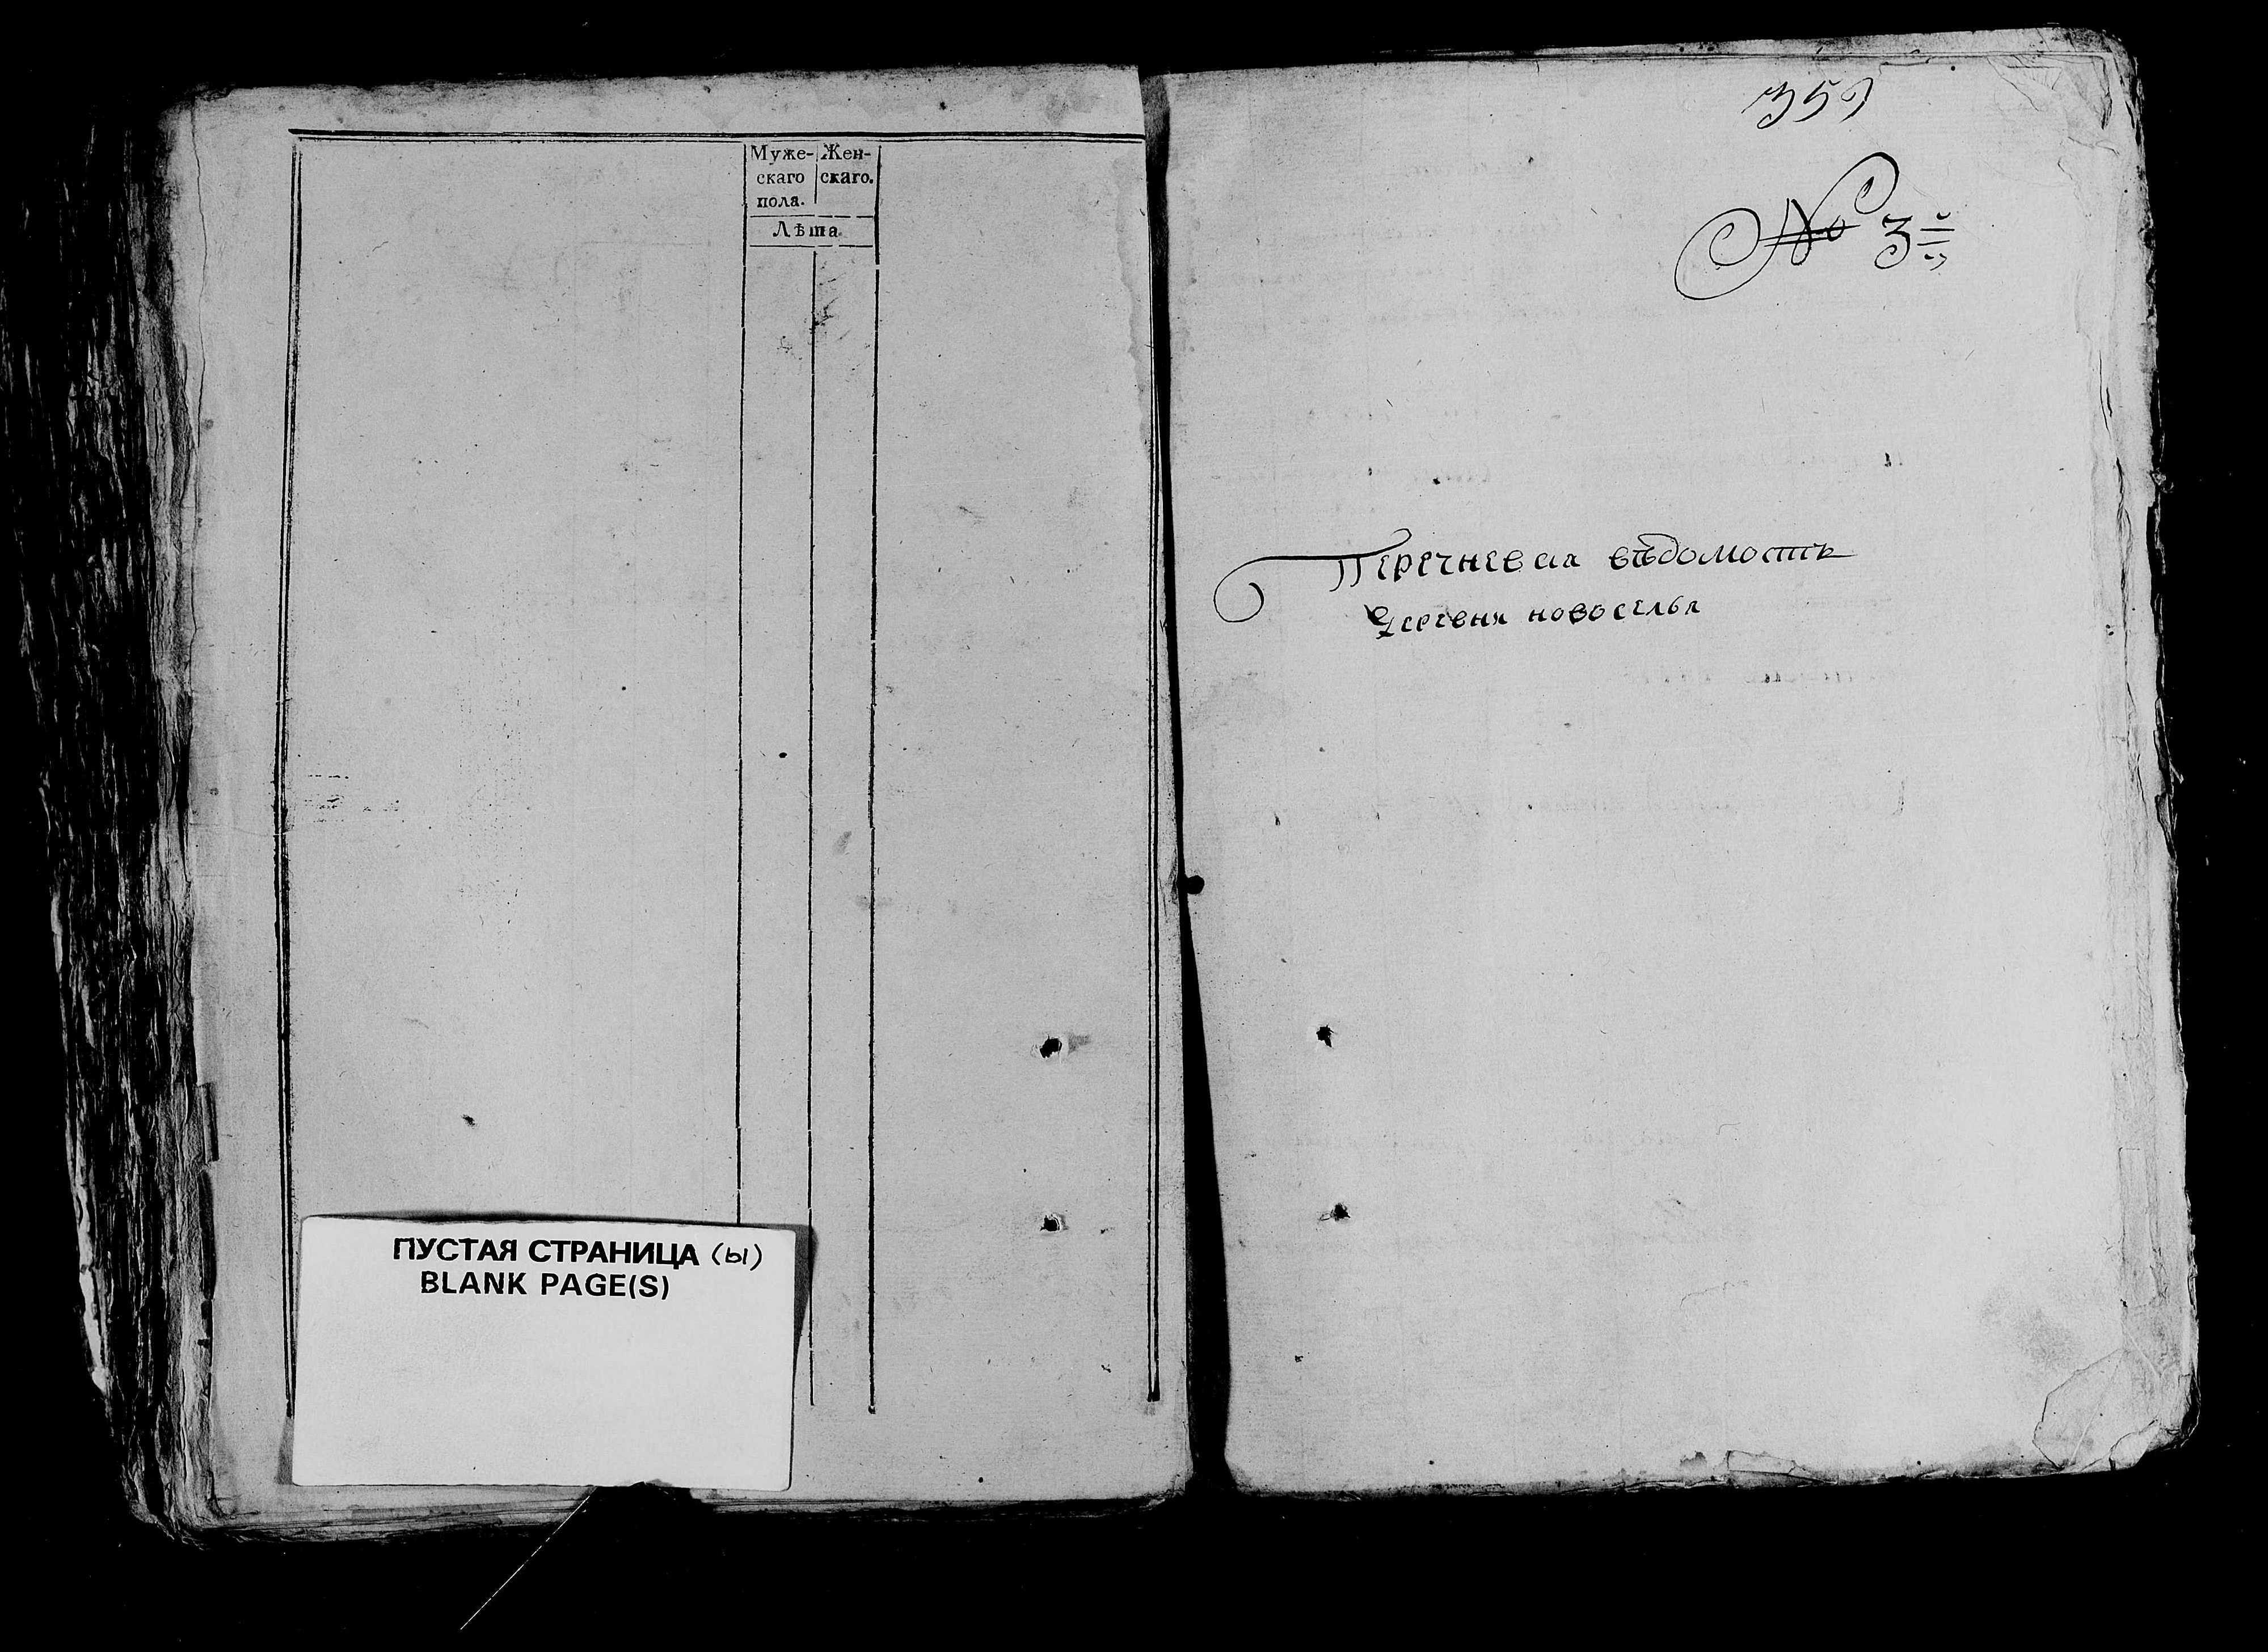 Муже- Жен-
скаго скаго.
пола.
Лѣта.
ПУСТАЯ СТРАНИЦА (ы)
BLANK PAGE(S)
359
№ 3й
Перечневая вѣдомость
деревни новоселья